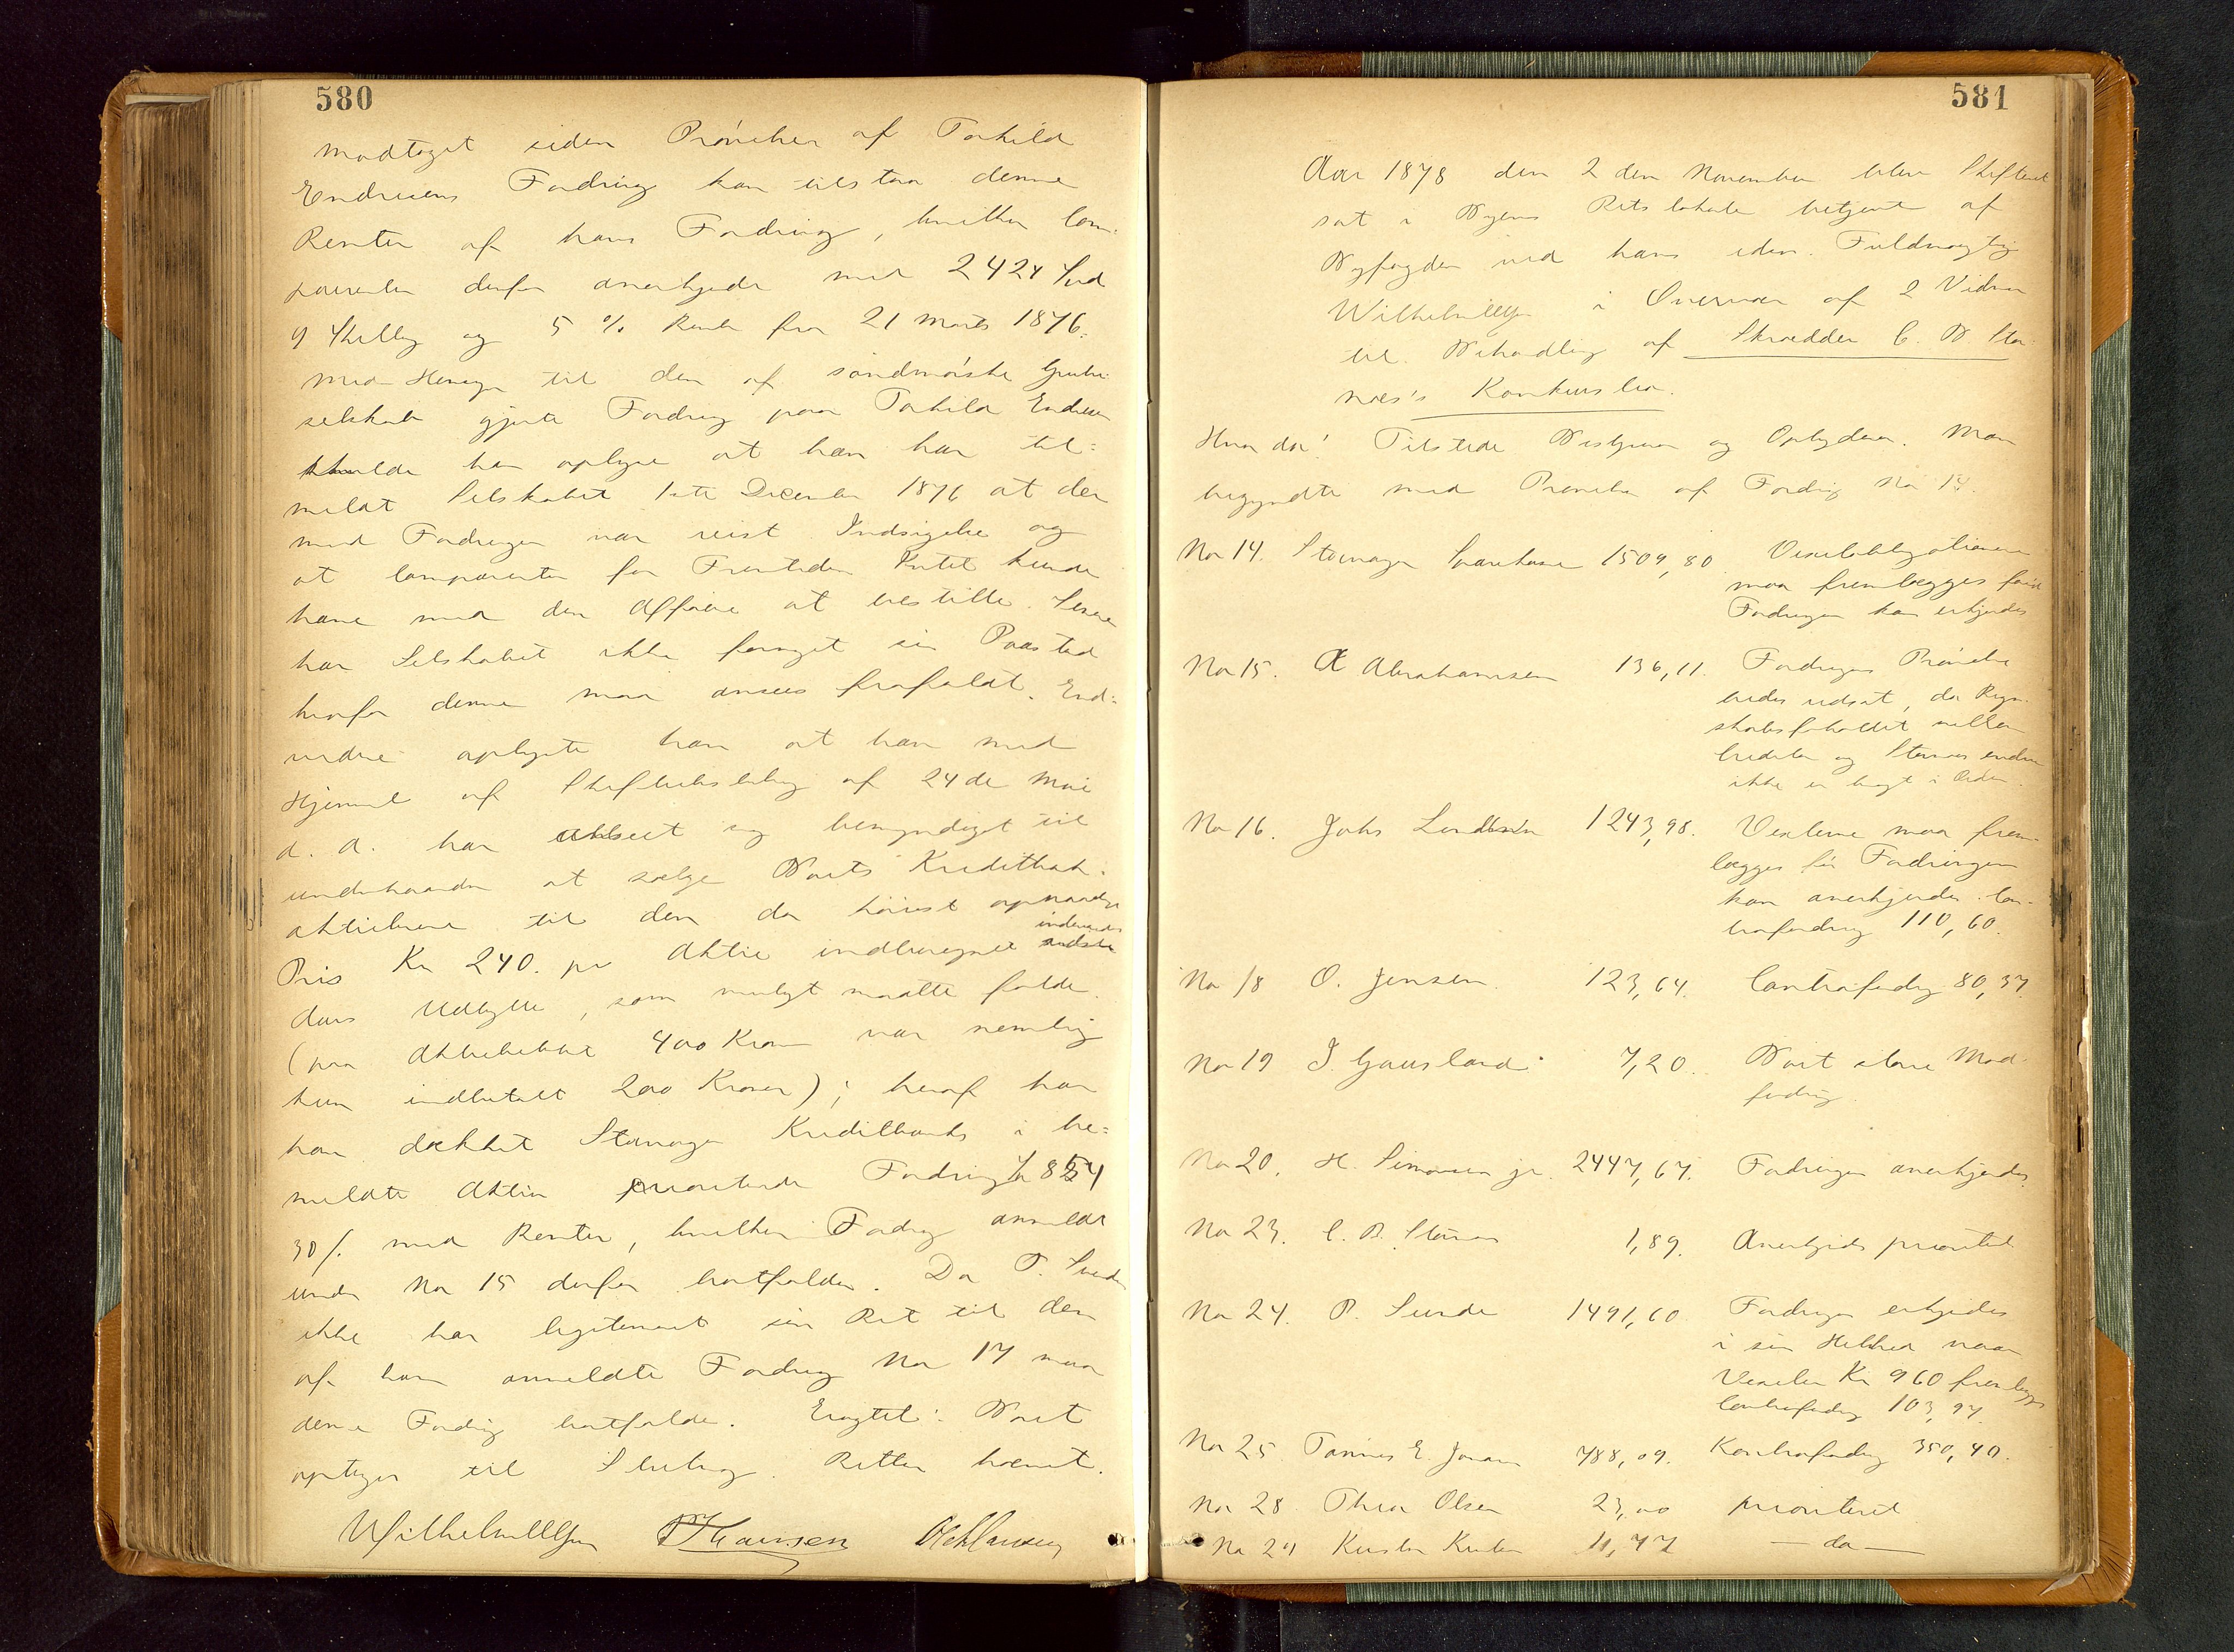 580
modtaget siden Prøvelsen af Torkild
Endresens Fordring kan tilstaa denne
Renter af hans Fordring, hvilken Com-
parenten derfor anerkjendte med 2424 Spd
9 Skilling og 5 % Rente fra 21 Marts 1876.
Med Hensyn til den af søndmørske Grube-
selskab gjorte Fordring paa Torkild Endresen
skulde han oplyse at han har til-
meldt Selskabet 1ste December 1876 at der
mod Fordringen var reist Indsigelse og
at Comparenten for Fremtiden Intet kunde
have med den Affaire at bestille. Senere
har Selskabet ikke fornyet sin Paastand
hvorfor denne maa ansees frafaldt. End-
videre oplyste han at han med
Hjemmel af Skifteslutning af 24de Mai
d. A. har anseet sig bemyndiget til
underhaanden at sælge Boets Kreditbank-
aktier til den da høiest opnaaede
Pris Kr 240. pr Aktie indberegnet indeværende
Aars Udbytte, som muligt maatte falde.
(paa Aktiebeløbet 400 Kroner var nemlig
kun indbetalt 200 Kroner); heraf har
han dækket Stavanger Kreditbanks i be-
meldte Aktier prioriterede Fordring
30 / med Renter, hvilken Fordring anmeldt
under No 15 derfor bortfalder. Da T. Svend
ikke har legitimeret sin Ret til den
af ham anmeldte Fordring No 17 maa
denne Fordring bortfalde. Eragtet: Boet
optages til Slutning. Retten hævet.
Wilhelm Olsen
581
Aar 1878 den 2den November blev Skifteret
sat i Byens Retslokale betjent af
Byfogden ved hans edsv. Fuldmægtig
i Overvær af 2 Vidner
til Behandling af Skrædder C. B. Stor-
næs's Konkursbo.
Hvor da! Tilstede Bestyreren og Opbyderen. Man
begyndte med Prøvelse af Fordring No 14.
No 14. Stavanger Sparekasse 1509,80 Vexelobligationerne
maa fremlægges førend
Fordringen kan erkjendes
No 15. A Abrahamsen 136,11. Fordringens Prøvelse
bedes udsat, da Regn-
skabsforholdet mellem
Creditor og Stornæs endnu
ikke er bragt i Orden.
No 16. Johs Lindtner 1243,98. Vexlerne maa frem-
lægges før Fordringen
kan anerkjendes. Con-
trafordring 110,60.
No 18 O. Jensen. 123,64. Contrafordring 80,37.
No 19 J. Gausland 7,20. Boet store Mod-
fordring.
No 20. H. Simonsen jr. 2447,67. Fordringen anerkjendes.
No 23. C. B. Stornæs 1,89. Anerkjendes prioriteret
No 24. P. Sunde 1491,60. Fordringen erkjendes
i sin Helhed naar
Vexelen Kr 960 fremlægges
Contrafordring 103,97.
No 25 Tønnes E. Jonasen 788,09. Kontrafordring 350,40.
No 28 Thea Olsen 23,00 prioriteret
No 29 11,77 — do —